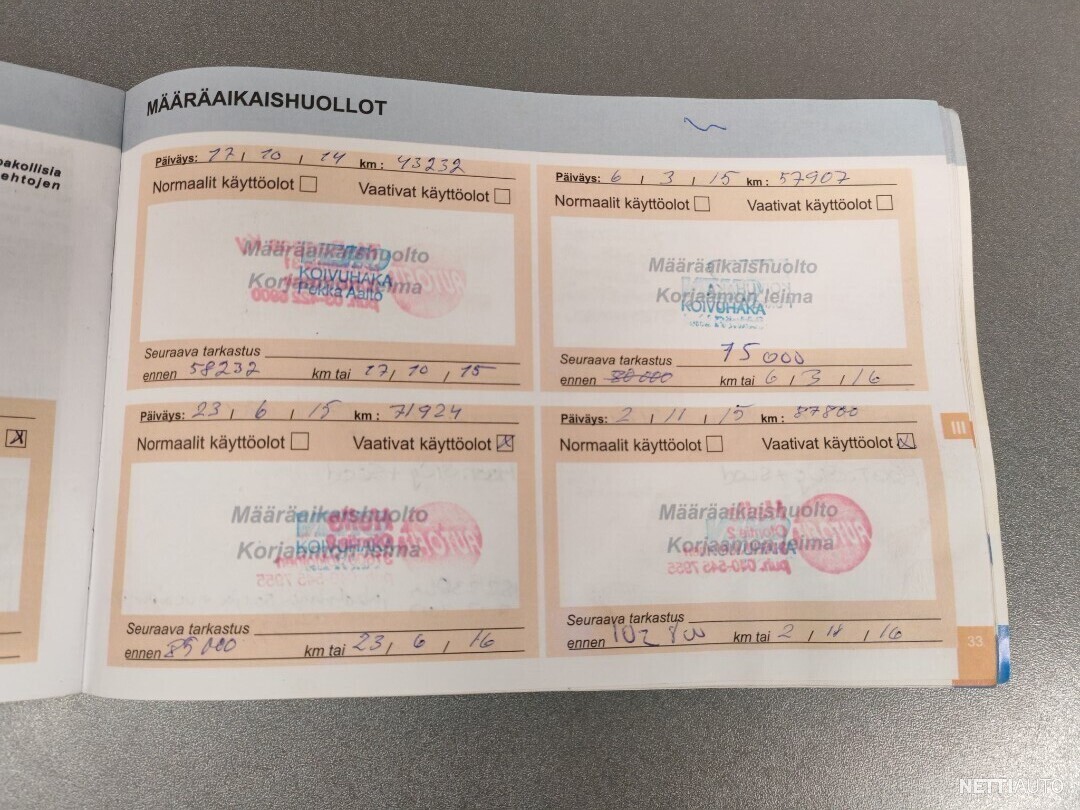 pakollisia
ehtojen
MÄÄRÄAIKAISHUOLLOT
Päiväys: 17 / 10 / 14 km : 43232
Normaalit käyttöolot Vaativat käyttöolot
Määräaikaishuolto
KOIVUHAKA
Korjaamon leima
Pekka Aalto
Seuraava tarkastus
ennen 58232 km tai 17 / 10 / 15
Päiväys: 6 / 3 / 15 km : 57907
Normaalit käyttöolot Vaativat käyttöolot
Määräaikaishuolto
Korjaamon leima
KOIVUHAKA
Seuraava tarkastus 75000
ennen 80000 km tai 6 / 3 / 16
Päiväys: 23 / 6 / 15 km : 71924
Normaalit käyttöolot Vaativat käyttöolot X
Määräaikaishuolto
Korjaamon leima
KOIVUHAKA
Seuraava tarkastus
ennen 85000 km tai 23 / 6 / 16
Päiväys: 2 / 11 / 15 km : 87800
Normaalit käyttöolot Vaativat käyttöolot X
Määräaikaishuolto
Korjaamon leima
Seuraava tarkastus
ennen 102800 km tai 2 / 11 / 16
III
33
NETTIAUTO